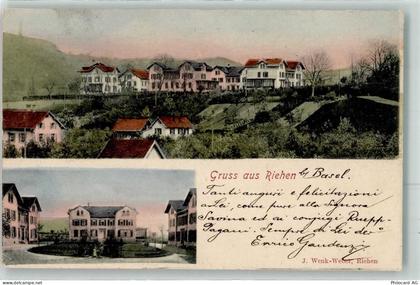 Gruss aus Riehen b/ Basel.
Tanti auguri e felicitazioni
a Lei, come pure alla Signora
Savina ed ai conjugi Ruepp-
Pagani. Sempre di Lei dev.
Enrico Gaudenzi
J. Wenk-Weber, Riehen
oldthing.com